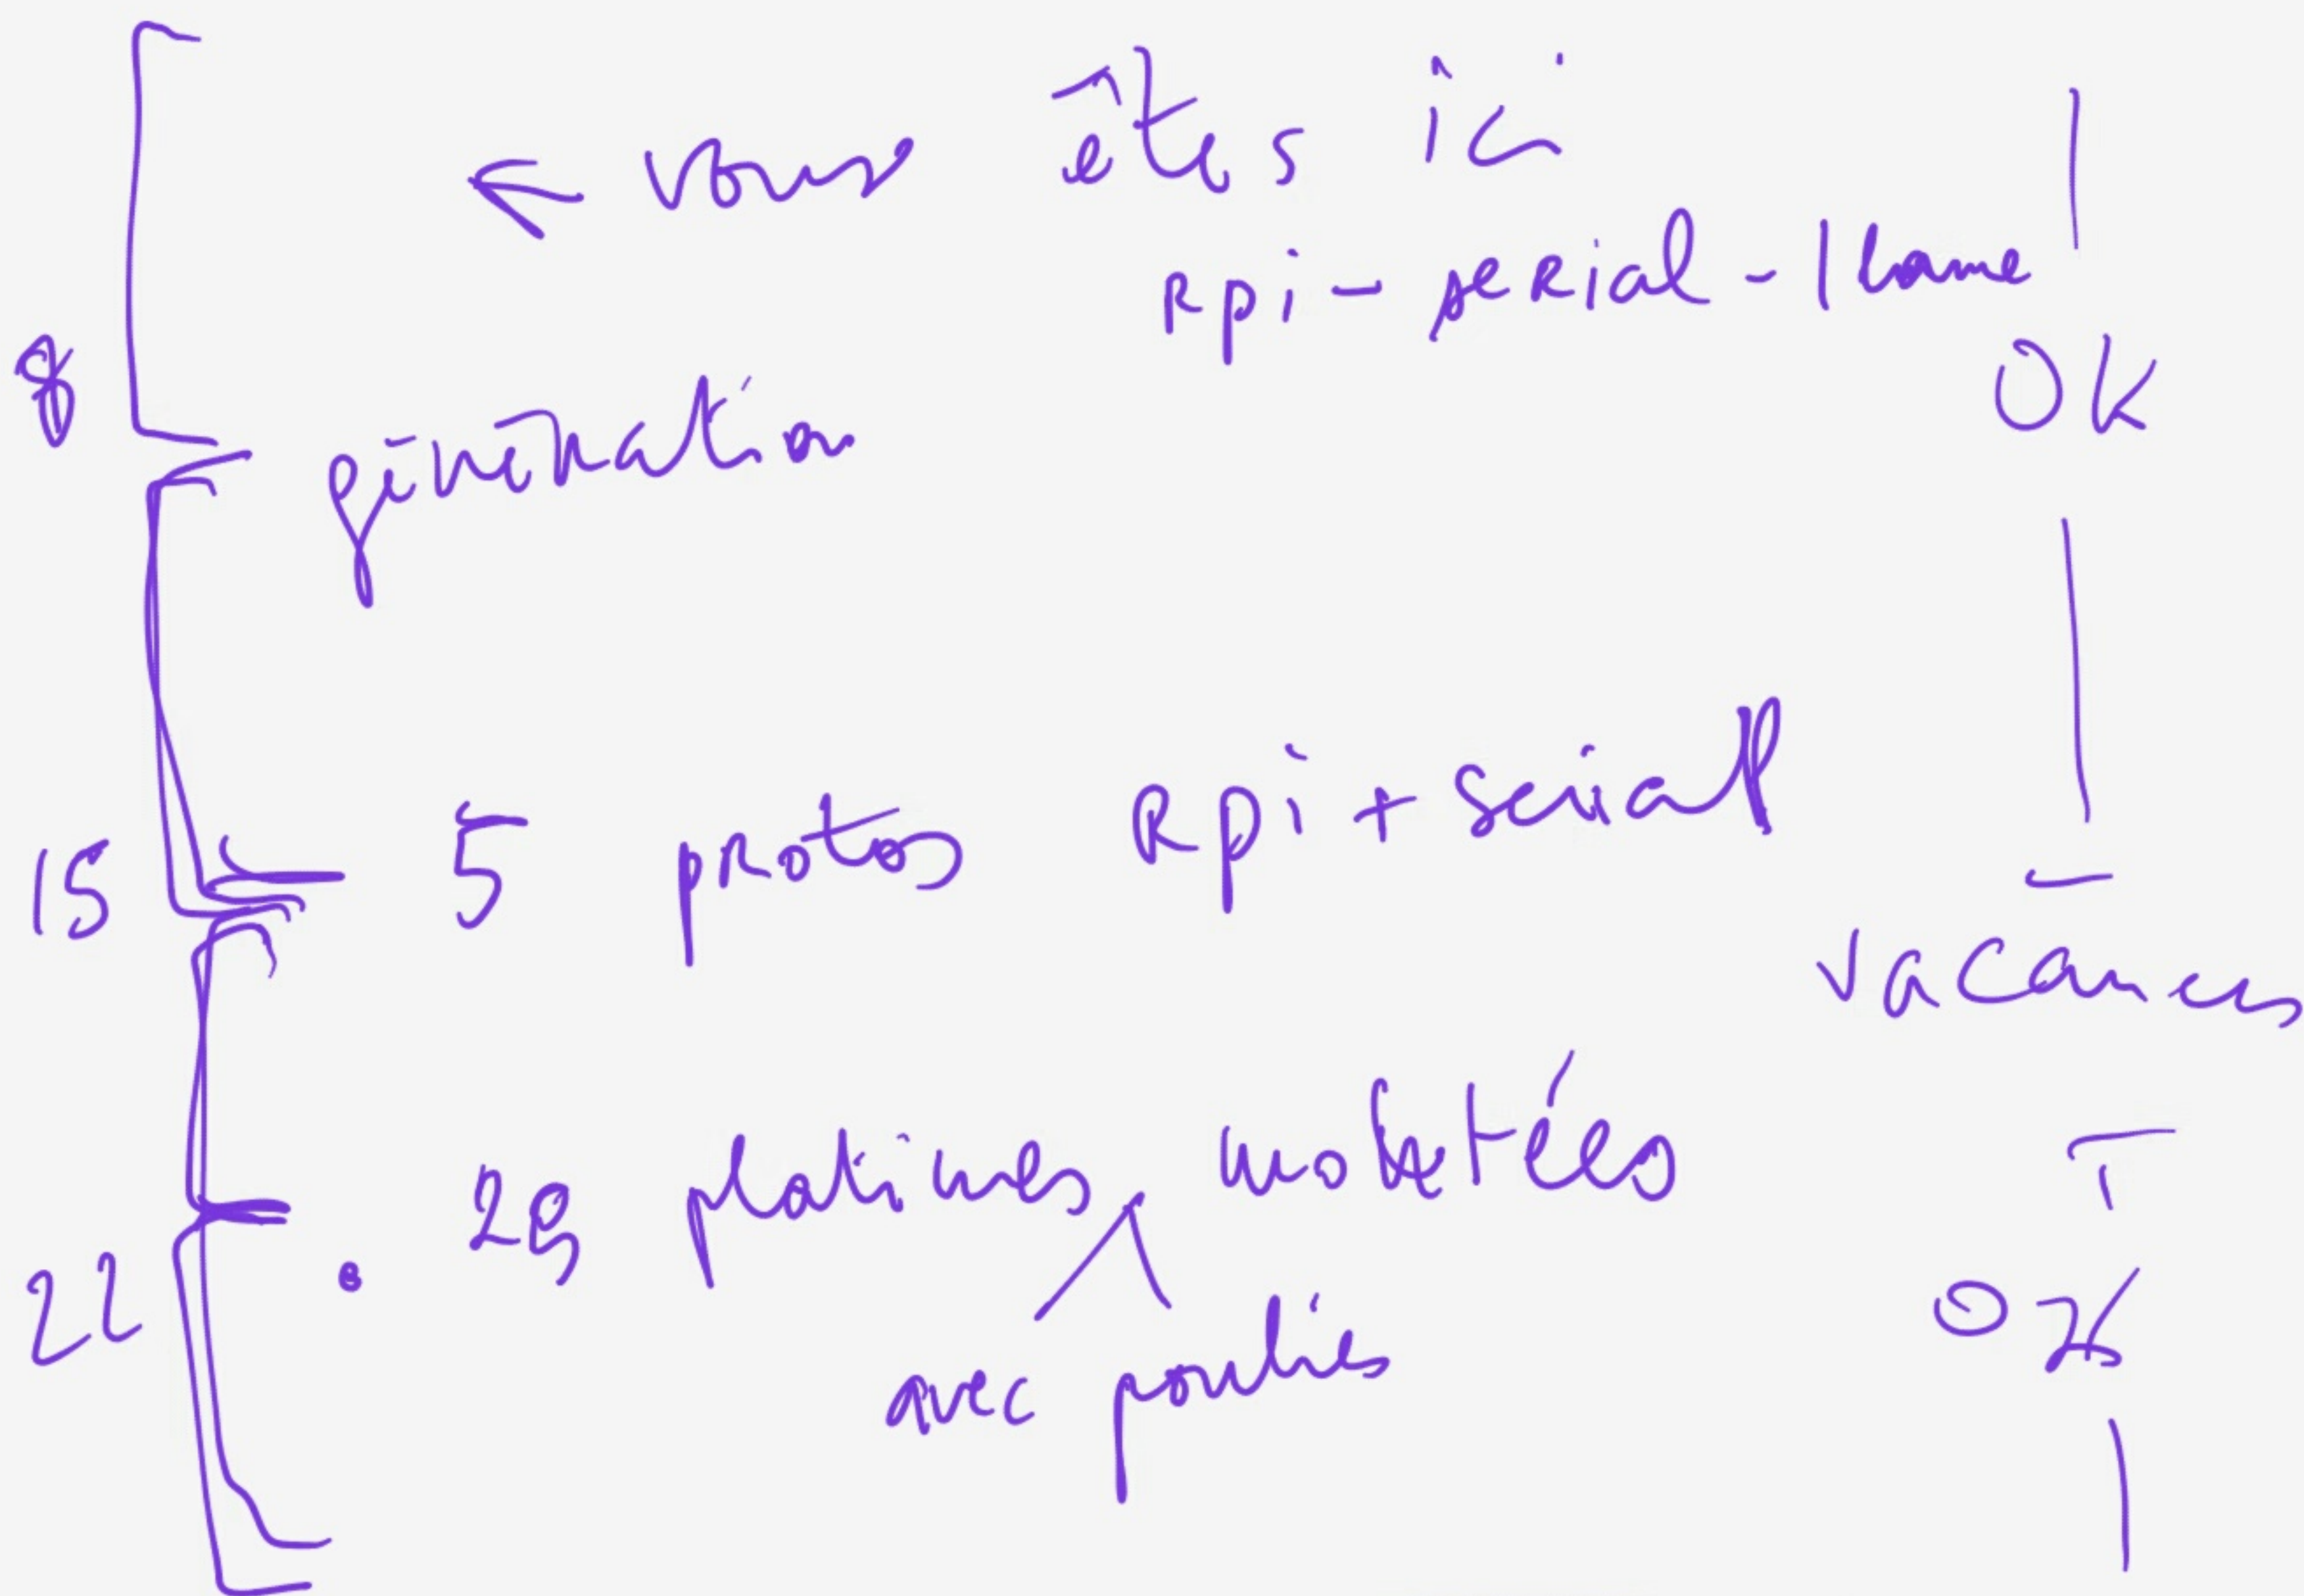 ← vous êtes ici
Rpi - serial - 1
OK
8
génération
15
5 protos Rpi + serial
vacances
22
platines motetées
avec poulies
OK